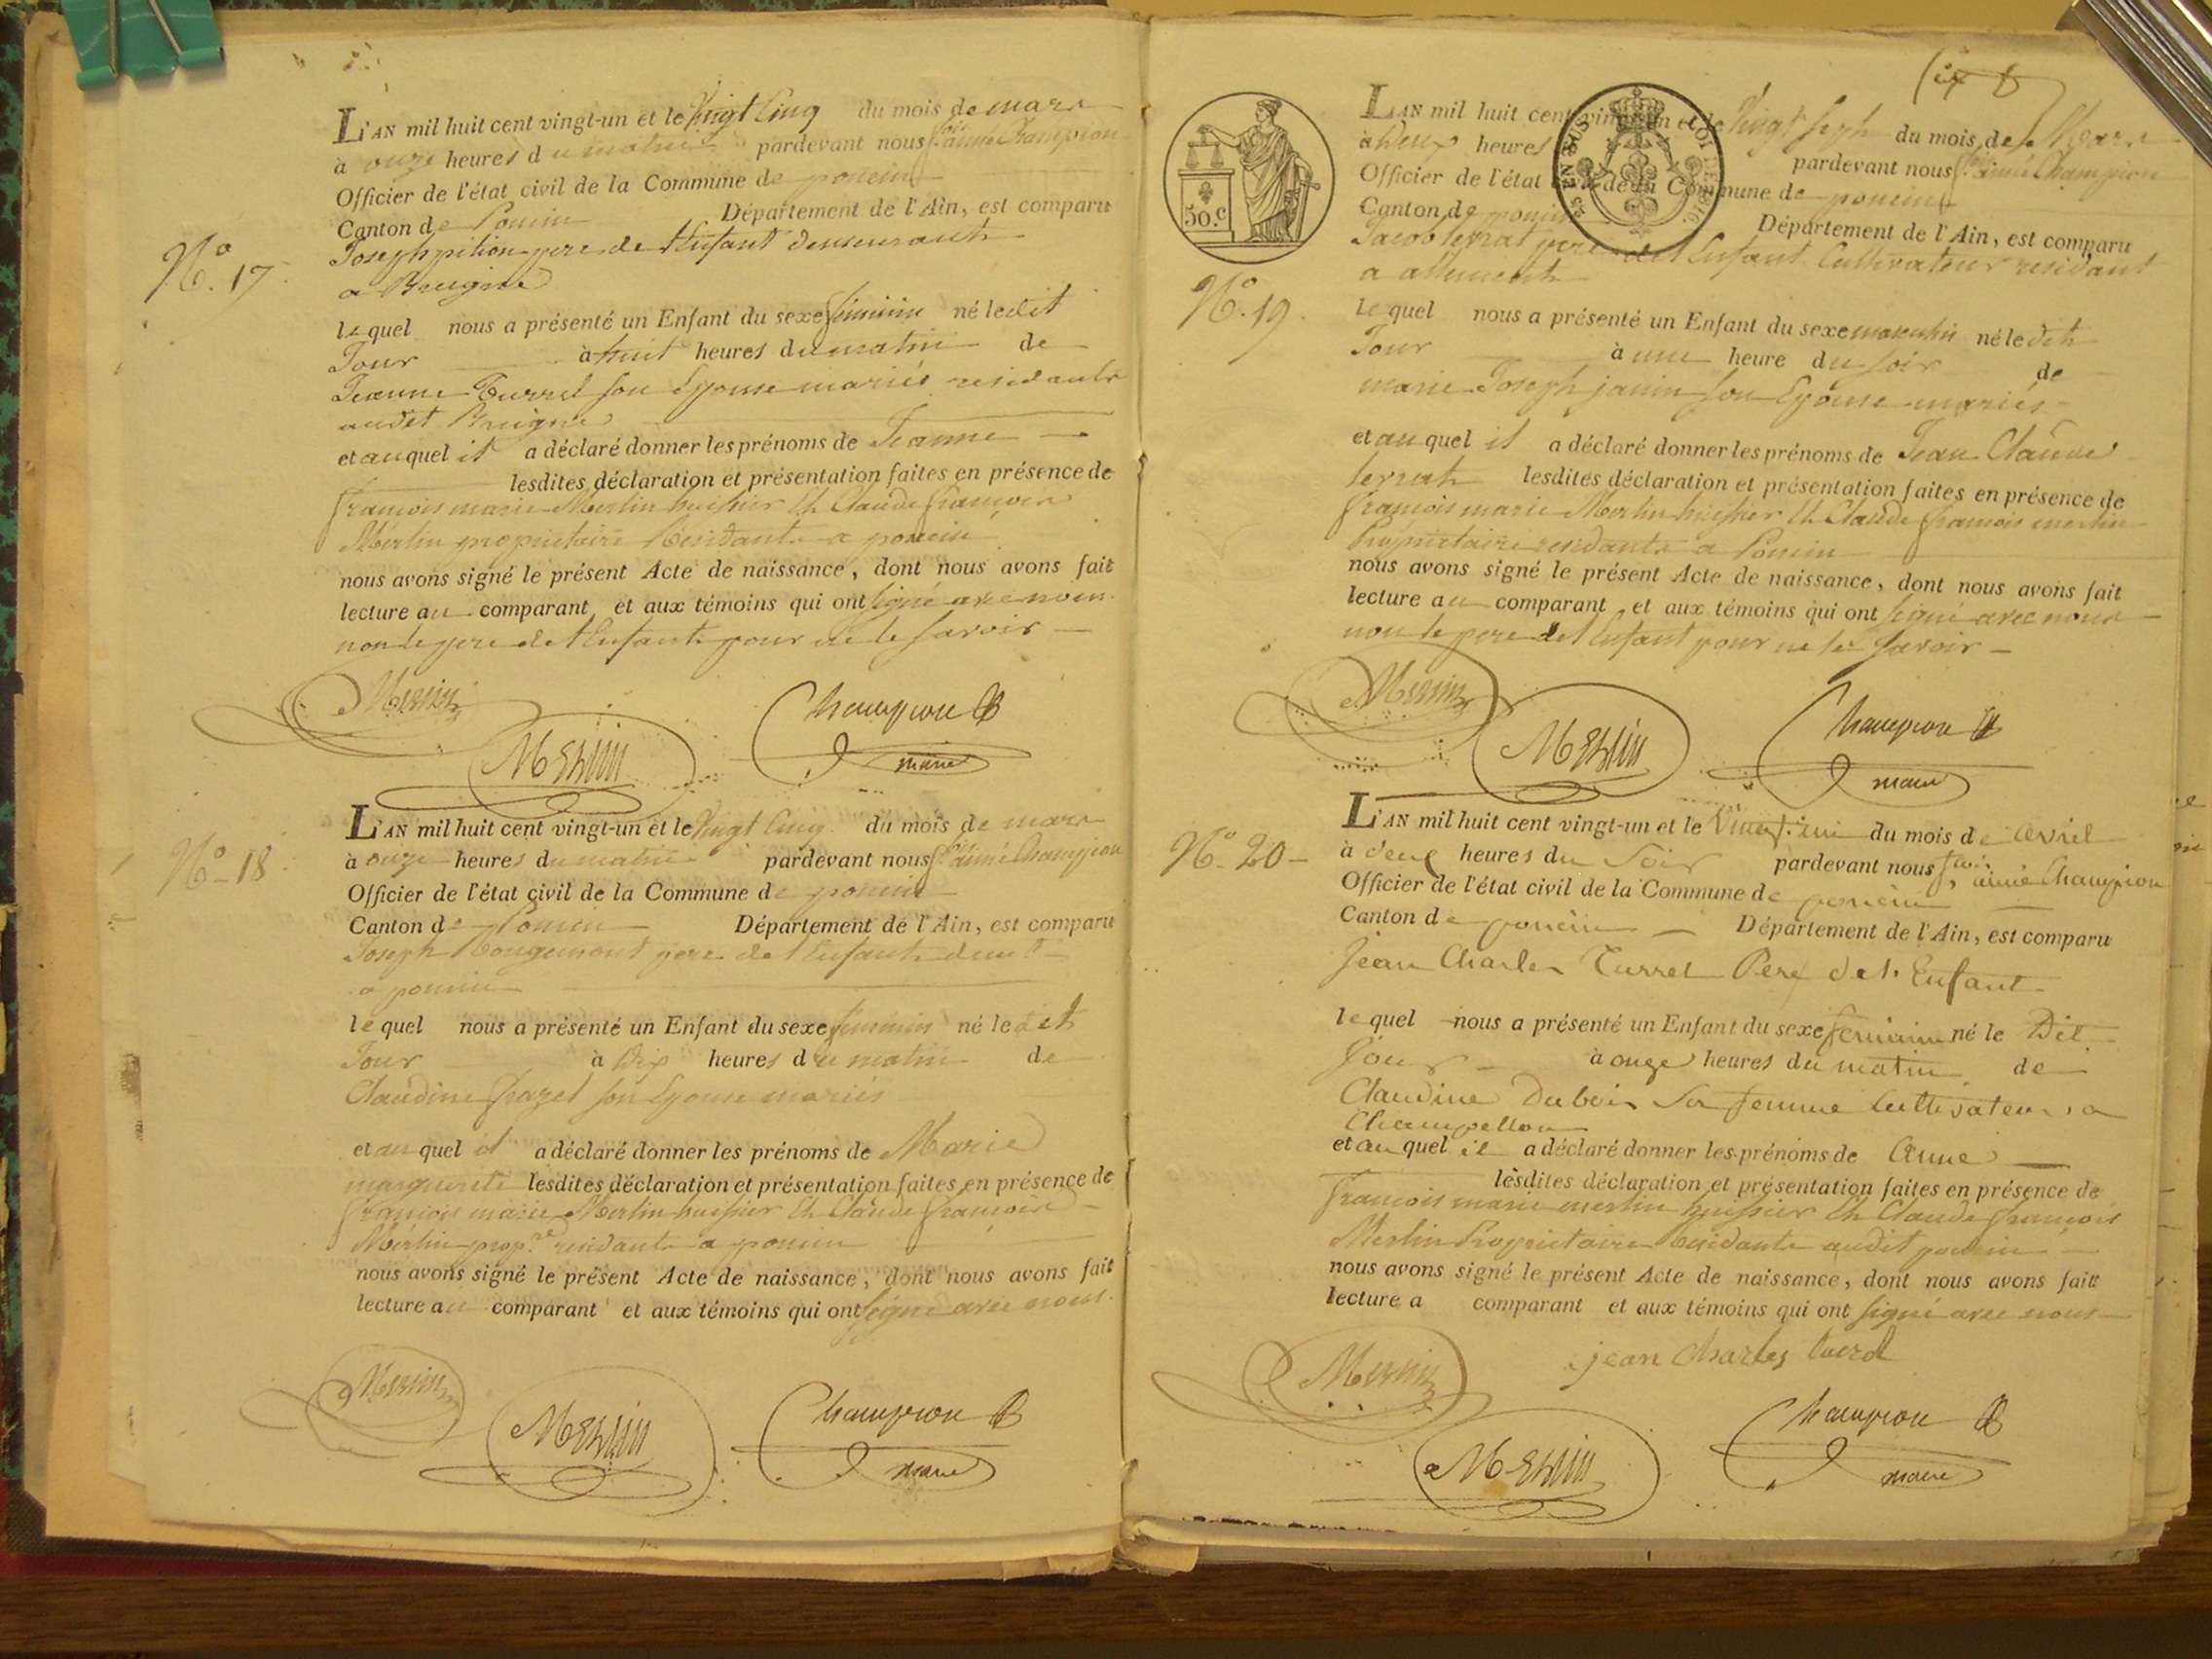 L'AN mil huit cent vingt-un et le Vingt Cinq du mois de mars
à onze heures du matin pardevant nous aimé Champion
Officier de l'état civil de la Commune de poncin
Canton de Poncin Département de l'Ain, est comparu
Joseph pition pere de l'Enfant demeurant
N.° 17
a Breigne
lequel nous a présenté un Enfant du sexe feminin né ledit
Jour à huit heures du matin de
Jeanne Turrel son Epouse mariés residants
audit Breigne
et auquel il a déclaré donner les prénoms de Jeanne
lesdites déclaration et présentation faites en présence de
francois marie Merlin huissier et Claude francois
Merlin proprietaire Residants a poncin
nous avons signé le présent Acte de naissance, dont nous avons fait
lecture au comparant et aux témoins qui ont signé avec nous
non le pere de l'Enfant pour ne le savoir
Merlin
Champion
Merlin
maire
L'AN mil huit cent vingt-un et le Vingt Cinq du mois de mars
à onze heures du matin pardevant nous aimé Champion
N.° 18
Officier de l'état civil de la Commune de poncin
Canton de Poncin Département de l'Ain, est comparu
Joseph Rougemont pere de l'Enfant
a poncin
lequel nous a présenté un Enfant du sexe feminin né ledit
Jour à Dix heures du matin de
Claudine son Epouse mariés
et auquel il a déclaré donner les prénoms de Marie
marguerite lesdites déclaration et présentation faites en présence de
francois marie Merlin huissier et Claude francois
Merlin prop.re residants a poncin
nous avons signé le présent Acte de naissance, dont nous avons fait
lecture au comparant et aux témoins qui ont signé avec nous.
Merlin
Champion
Merlin
maire
L'AN mil huit cent vingt-un et le Vingt Sept du mois de Mars
à Deux heures pardevant nous aimé Champion
Officier de l'état civil de la Commune de poncin
Canton de poncin Département de l'Ain, est comparu
50.c
EN SUS
LOI DE 1816
Jacob levrat pere de l'Enfant Cultivateur residant
a allement
N.° 19.
lequel nous a présenté un Enfant du sexe masculin né ledit
Jour à une heure du soir de
marie Joseph janin son Epouse mariés
et auquel il a déclaré donner les prénoms de Jean Claude
levrat lesdites déclaration et présentation faites en présence de
francois marie Merlin huissier et Claude francois merlin
Proprietaire residants a Poncin
nous avons signé le présent Acte de naissance, dont nous avons fait
lecture au comparant et aux témoins qui ont signé avec nous
non le pere de l'Enfant pour ne le savoir
Merlin
Champion
Merlin
maire
L'AN mil huit cent vingt-un et le du mois de avril
N.° 20
à deux heures du Soir pardevant nous aimé Champion
Officier de l'état civil de la Commune de poncin
Canton de poncin Département de l'Ain, est comparu
Jean Charles Turrel Pere de l'Enfant
lequel nous a présenté un Enfant du sexe feminin né le Dit
Jour à onze heures du matin de
Claudine Dubois Sa femme Cultivateurs a
Champellon
et auquel il a déclaré donner les prénoms de Anne
lesdites déclaration et présentation faites en présence de
francois marie merlin huissier et Claude francois
Merlin Proprietaire Residants audit poncin
nous avons signé le présent Acte de naissance, dont nous avons fait
lecture a comparant et aux témoins qui ont signé avec nous
jean charles
Merlin
Champion
Merlin
maire